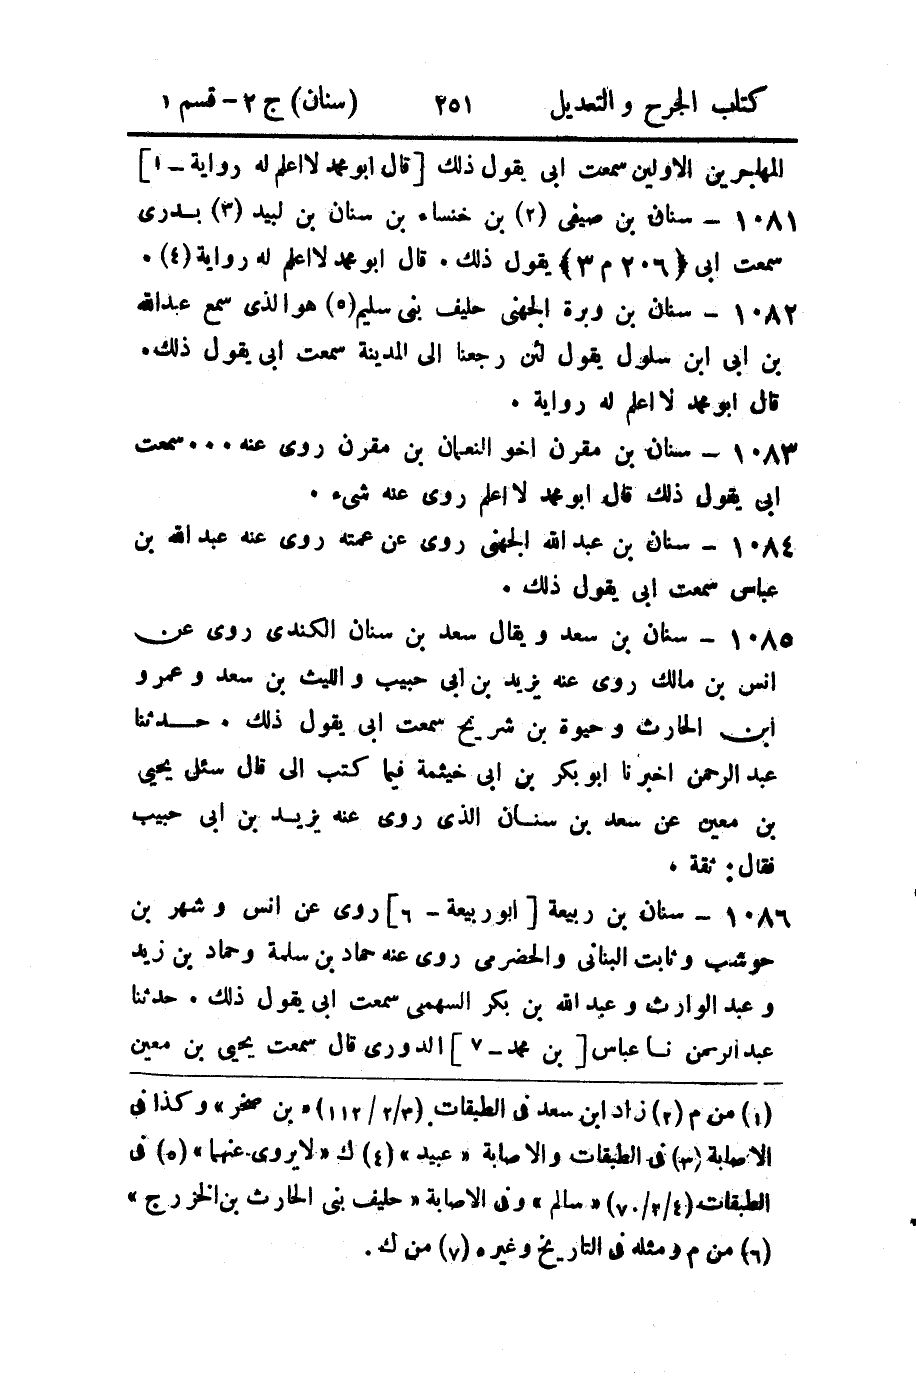 كتاب الجرح والتعديل ٢٥١ (سنان) ج ٢ - قسم ١
المهاجرين الاولين سمعت ابى يقول ذلك [قال ابو محمد لا اعلم له رواية - ١]
١٠٨١ - سنان بن صيفى (٢) بن خنساء بن سنان بن لبيد (٣) بدرى
سمعت ابى ﴿٢٠٦ م ٣﴾ يقول ذلك . قال ابو محمد لا اعلم له رواية (٤) .
١٠٨٢ - سنان بن وبرة الجهنى حليف بنى سليم (٥) هو الذى سمع عبدالله
بن ابى ابن سلول يقول لئن رجعنا الى المدينة سمعت ابى يقول ذلك.
قال ابو محمد لا اعلم له رواية .
١٠٨٣ - سنان بن مقرن اخو النعمان بن مقرن روى عنه ... سمعت
ابى يقول ذلك قال ابو محمد لا اعلم روى عنه شىء .
١٠٨٤ - سنان بن عبد الله الجهنى روى عن عمته روى عنه عبد الله بن
عباس سمعت ابى يقول ذلك .
١٠٨٥ - سنان بن سعد و يقال سعد بن سنان الكندى روى عن
انس بن مالك روى عنه يزيد بن ابى حبيب و الليث بن سعد و عمرو
ابن الحارث و حيوة بن شريح سمعت ابى يقول ذلك . حدثنا
عبد الرحمن اخبرنا ابو بكر بن ابى خيثمة فيما كتب الى قال سئل يحيى
بن معين عن سعد بن سنان الذى روى عنه يزيد بن ابى حبيب
فقال: ثقة .
١٠٨٦ - سنان بن ربيعة [ابو ربيعة - ٦] روى عن انس و شهر بن
حوشب و ثابت البنانى والحضرمى روى عنه حماد بن سلمة وحماد بن زيد
و عبد الوارث و عبد الله بن بكر السهمى سمعت ابى يقول ذلك . حدثنا
عبد الرحمن نا عباس [بن محمد - ٧] الدورى قال سمعت يحيى بن معين
(١) من م (٢) زاد ابن سعد فى الطبقات (٣/٢/١١٢) « بن صخر » و كذا فى
الاصابة (٣) فى الطبقات والاصابة « عبيد » (٤) ك « لا يروى عنهما » (٥) فى
الطبقات (٤/٢/٧٠) « سالم » وفى الاصابة « حليف بنى الحارث بن الخزرج »
(٦) من م و مثله فى التاريخ وغيره (٧) من ك .